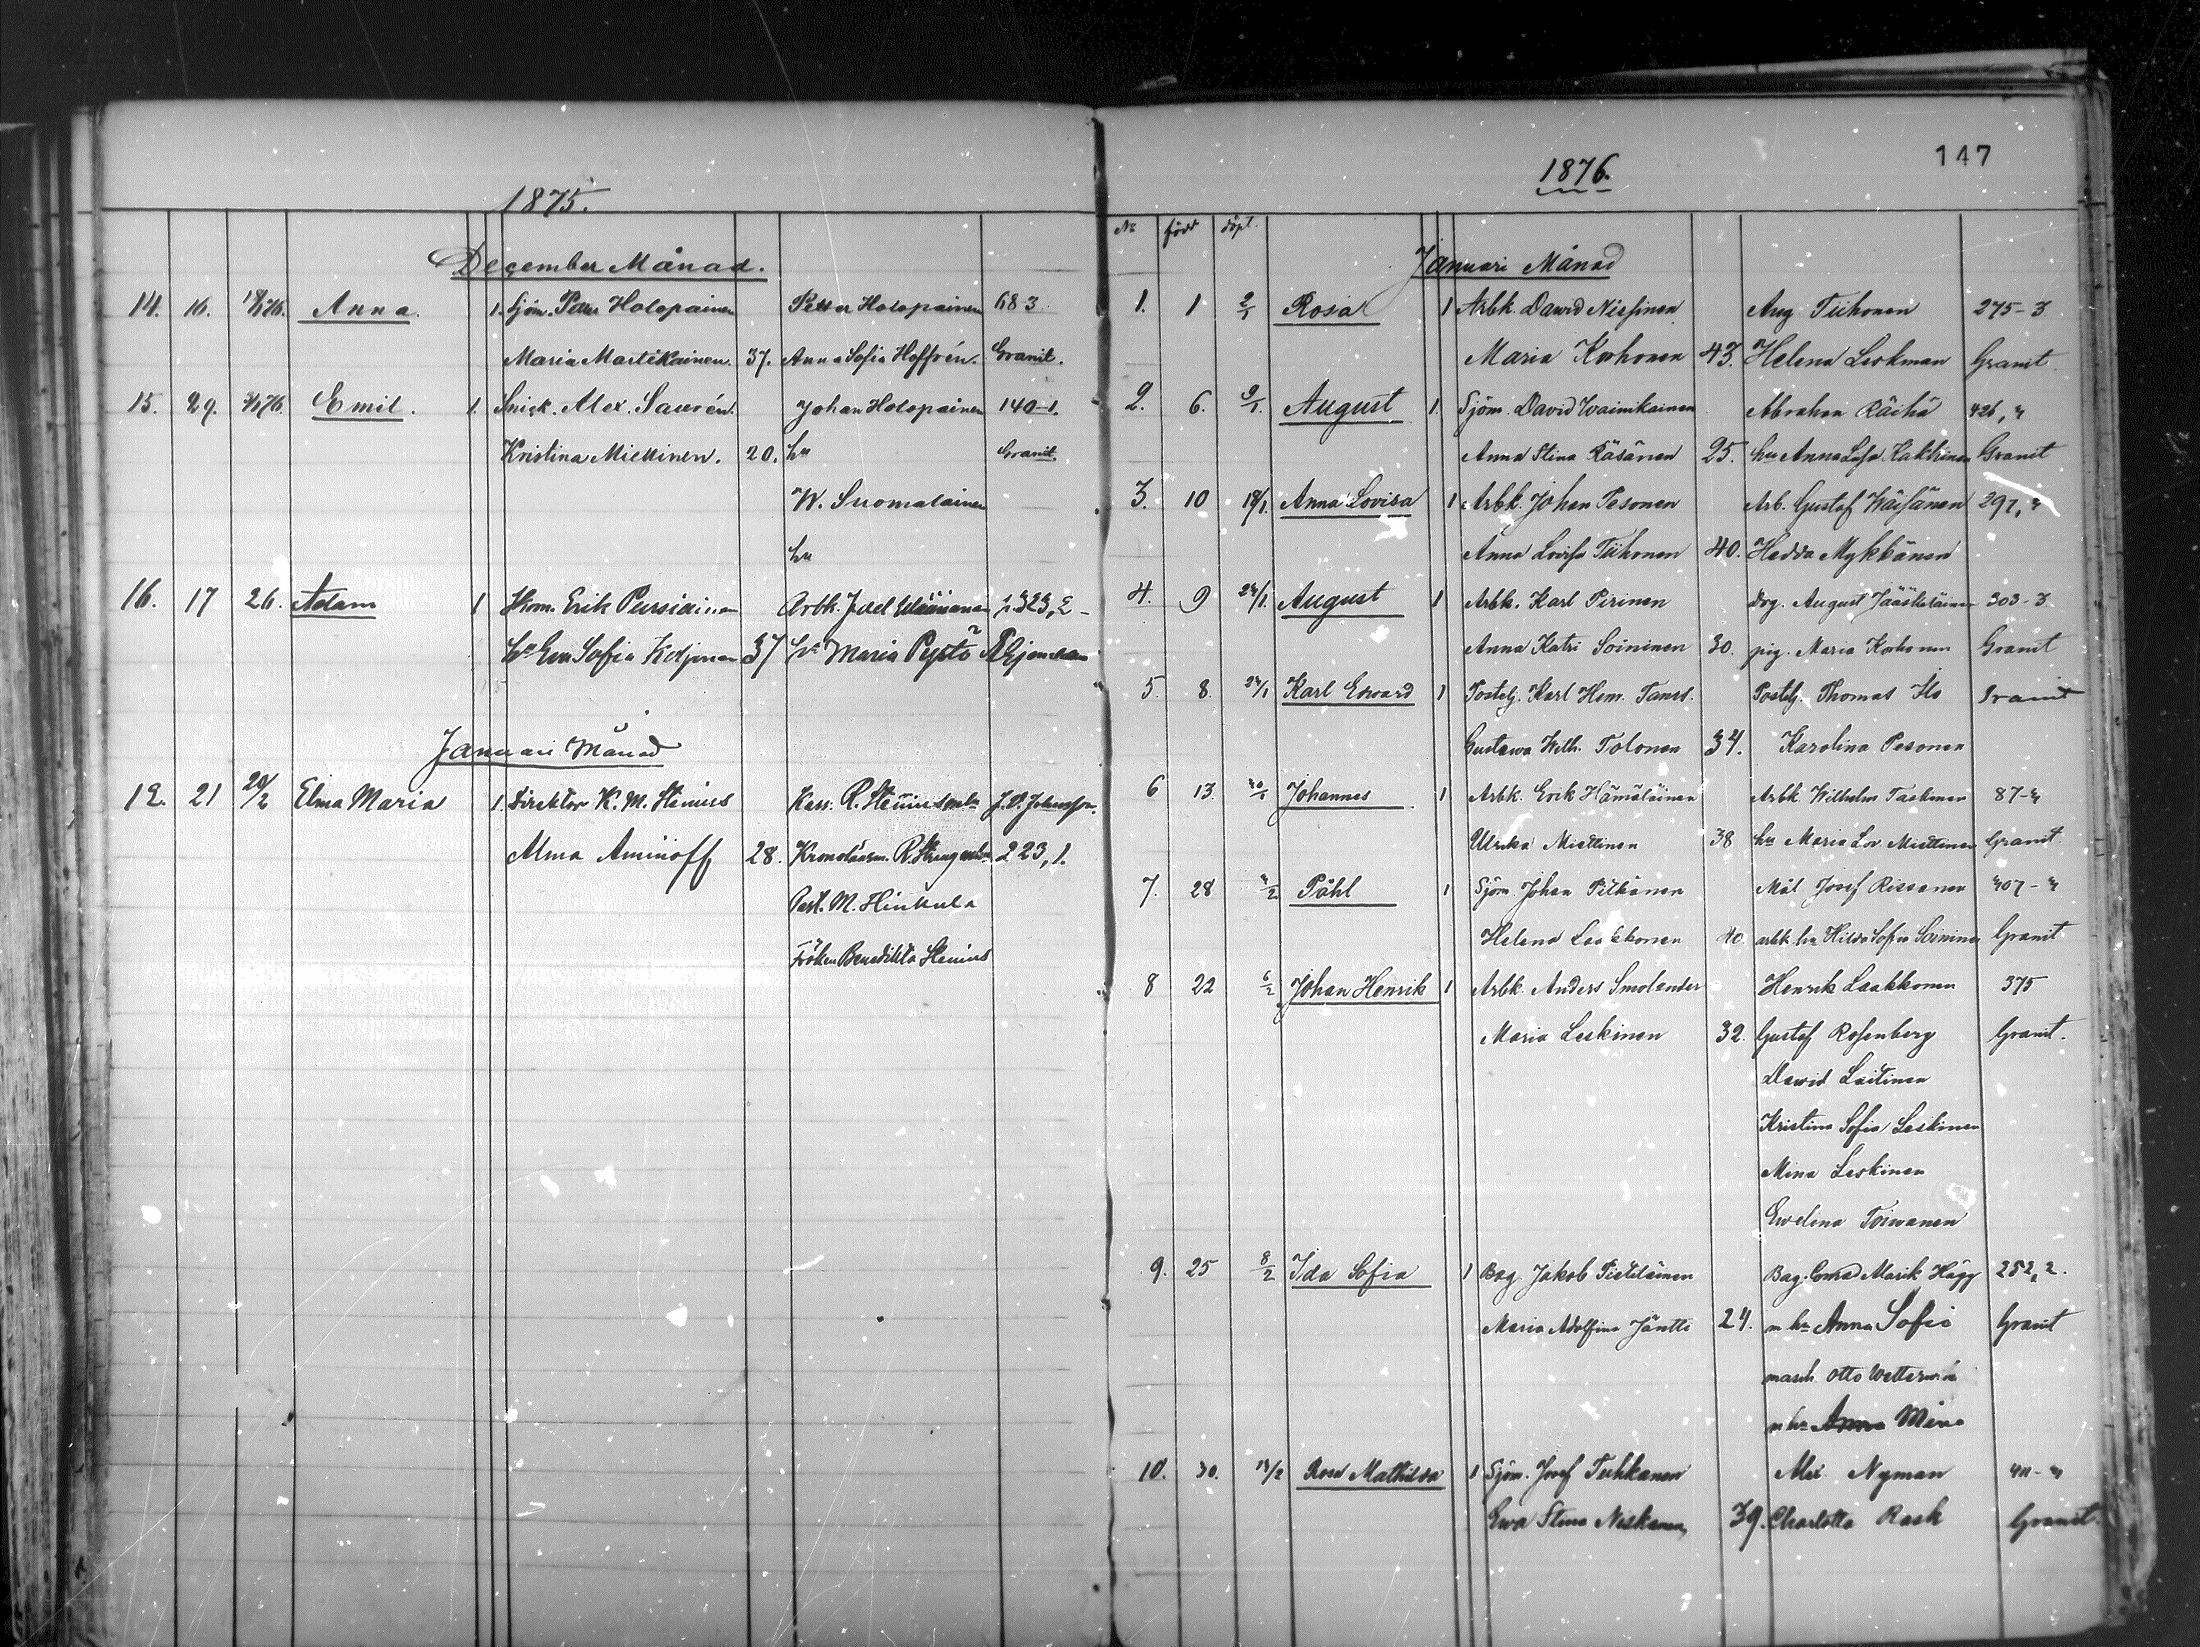 1875.
December Månad.
14. 16. Anna. 1. Sjöm. Petter Holopainen Petter Holopainen 68-3.
Maria Martikainen. 37. Anna Sofia Hoffrén. Granit.
15. 29. Emil. 1. Snick. Alex. Saurén. Johan Holopainen 140-1.
Kristina Miettinen. 20. hu Granit.
W. Suomalainen
hu
16. 17 26. Adam 1 Erik Pursiainen Arbk. 323,2
Eva Sofia 37 Maria
Januari Månad
12. 21 20/2 Elma Maria 1. Direktor K. M. Stenius Kass. R. Stenius
Alma Aminoff 28. 223,1.
M. Hinkula
Fröken Benedikta Stenius
147
1876.
No född döpt.
Januari Månad
1. 1 2/1 Rosa 1 Arbk. Dawid Nissinen Aug Tiihonen 275-3
Maria Korhonen 43. Helena Leskman Granit
2. 6. 9/1. August 1. Sjöm. David Wainikainen Abraham Räihä
Anna Stina Räsänen 25. hu Anna Granit
3. 10 18/1. Anna Lovisa 1 Arbk. Johan Pesonen Arb. Gustaf Wäisänen
Anna Lovisa Tiihonen 40. Hedda Mykkänen
4. 9 24/1. August 1 Arbk. Karl Pirinen Drg. August Jääskeläinen 303-3
Anna Katri Soininen 30. pig. Maria Korhonen Granit
5. 8. 24/1 Karl Edward 1 Karl Hem. Thomas Granit
Gustava Wilh. Tolonen 34. Karolina Pesonen
6 13. Johannes 1 Arbk. Erik Hämäläinen Arbk. Wilhelm Taskinen
Ulrika Miettinen 38 hu Maria Lov. Miettinen Granit
7. 28 Påhl 1 Sjöm. Johan Pitkänen Mål. Josef Rissanen
Helena 40. arbk. hu Hilda Sofia Soininen Granit
8 22 6/2 Johan Henrik 1 Arbk. Anders Smolander Henrik Laakkonen 375
Maria Leskinen 32. Gustaf Rosenberg Granit.
Dawid Laitinen
Kristina Sofia Leskinen
Mina Leskinen
Ewelina Toiwanen
9. 25 8/2 Ida Sofia 1 Bag. Jakob Pietiläinen Bag. Conrad Hägg 252,2.
Maria Adolfina Jäntti 24. m hu Anna Sofia Granit
Otto
m hu Anna Mina
10. 30. 13/2 Rosa Mathilda 1 Sjöm. Josef Tuhkanen Alex Nyman
Ewa Stina Niskanen 39. Charlotta Rask Granit